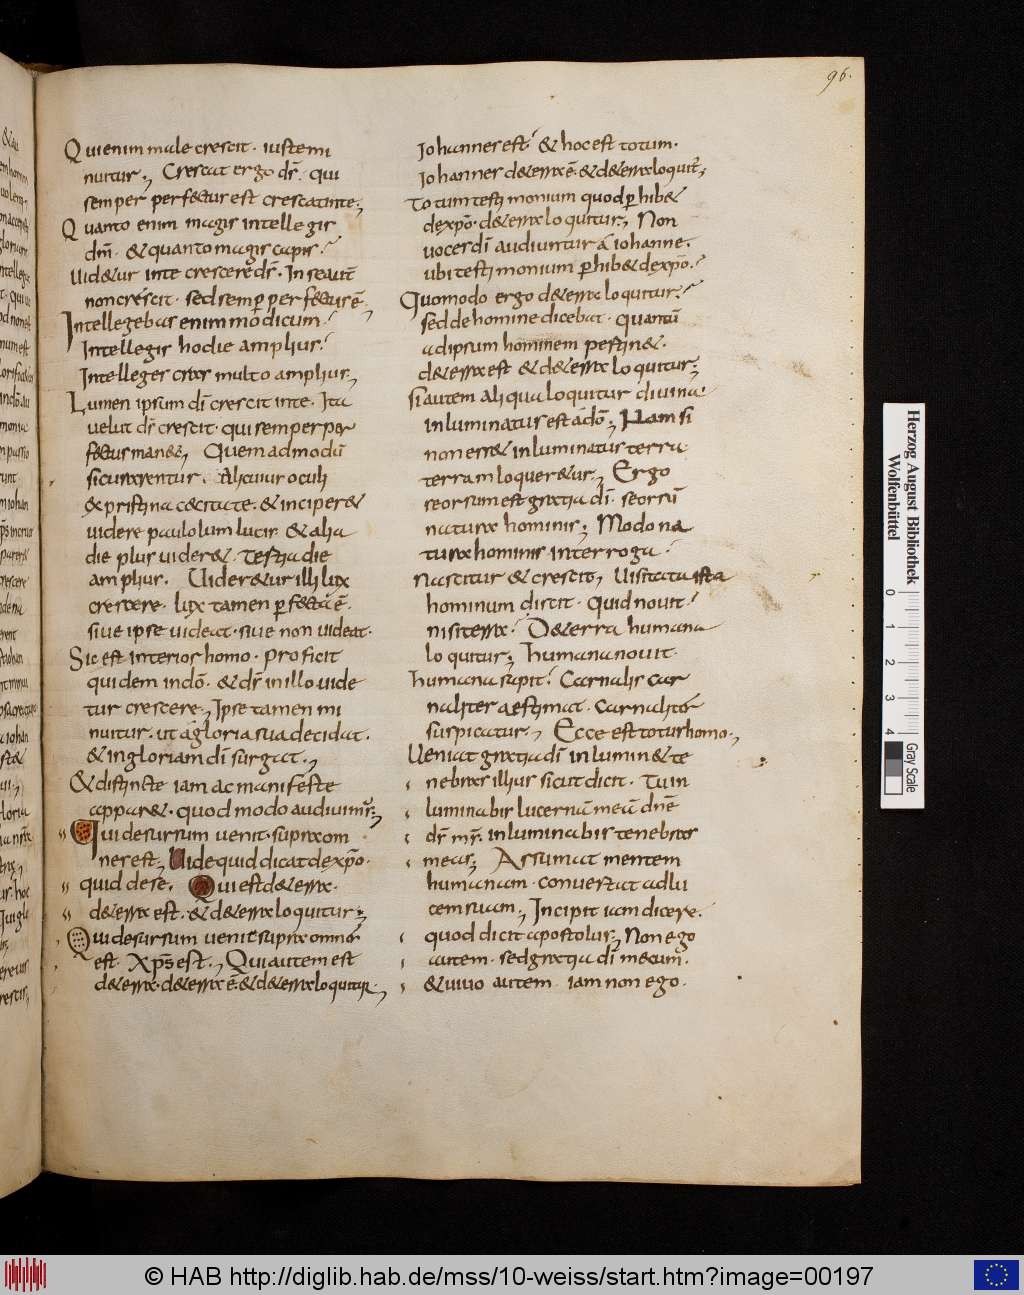 96.
Quienim male crescit · iuste mi
nuitur ; Crescat ergo d̄s · qui
semper perfectus est crescat inte ;
Quanto enim magis intellegis
dm̄ · & quanto magis capis ·
Uid&ur inte crescere d̄s · In se aut̄
non crescit · sed semp̄ perfectus ē ;
Intellegebas enim modicum ·
Intellegis hodie amplius ·
Intelleges cras multo amplius ;
Lumen ipsum dī crescit inte · Ita
velut d̄s crescit · qui semper per
fectus man& ; Quemadmodū
si curarentur · Alicuius oculi
& pristina cæcitate · & inciper&
uidere paululum lucis · & alia
die plus uider& · Tertia die
amplius · Uider&ur illi lux
crescere · lux tamen p̄fecta ē ·
siue ipse uideat · siue non uideat ·
Sic est interior homo · Proficit
quidem indō · & d̄s in illo uide
tur crescere ; Ipse tamen mi
nuitur · ut a gloria sua decidat ·
& in gloriam dī surgat ;
& distincte iam ac manifeste
appar& · quod modo audiuim̄ ;
Qui desursum uenit · supra om
nes est ; Uide quid dicat dexp̄o ·
quid dese · Qui est d&erra ·
d&erra est · & d&erra loquitur ;
Qui desursum uenit supra omnes
est · Xp̄s est ; Qui autem est
d&erra · d&erra ē · & d&erra loquitur ;
Iohannes est · & hoc est totum ·
Iohannes d&erra ē · & d&erra loquit̄ ;
Totum testimonium quod p̄hib&
dexp̄o · d&erra loquitur ; Non
uoces dī audiuntur a iohanne ·
ubi testimonium p̄hib& dexp̄o ·
Quomodo ergo d&erra loquitur ·
sed de homine dicebat · quantū
adipsum hominem pertin& ·
d&erra est & d&erra loquitur ;
si autem aliqua loquitur diuina
inluminatus est adō ; Nam si
non ess& inluminatus terra
terram loquer&ur ; Ergo
seorsum est gratia dī · seorsū
natura hominis ; Modo na
tura hominis interroga ·
Nascitur & crescit ; Usitata ista
hominum discit · Quid nouit ·
nisi terra · D&erra humana
loquitur ; humana nouit ·
humana sapit · Carnalis car
naliter aestimat · carnaliter
suspicatur ; Ecce est totus homo ;
Ueniat gratia dī inlumin& te
nebras illius sicut dicit · Tu in
luminabis lucernā meā dn̄e
d̄s m̄s inluminabis tenebras
meas ; Assumat mentem
humanam · convertat ad lu
cem suam ; Incipit iam dicere ·
quod dicit apostolus ; Non ego
autem · sed gratia dī mecum ·
& uiuo autem · iam non ego ·
Herzog August Bibliothek
Wolfenbüttel
0 1 2 3 4
Gray Scale
© HAB http://diglib.hab.de/mss/10-weiss/start.htm?image=00197